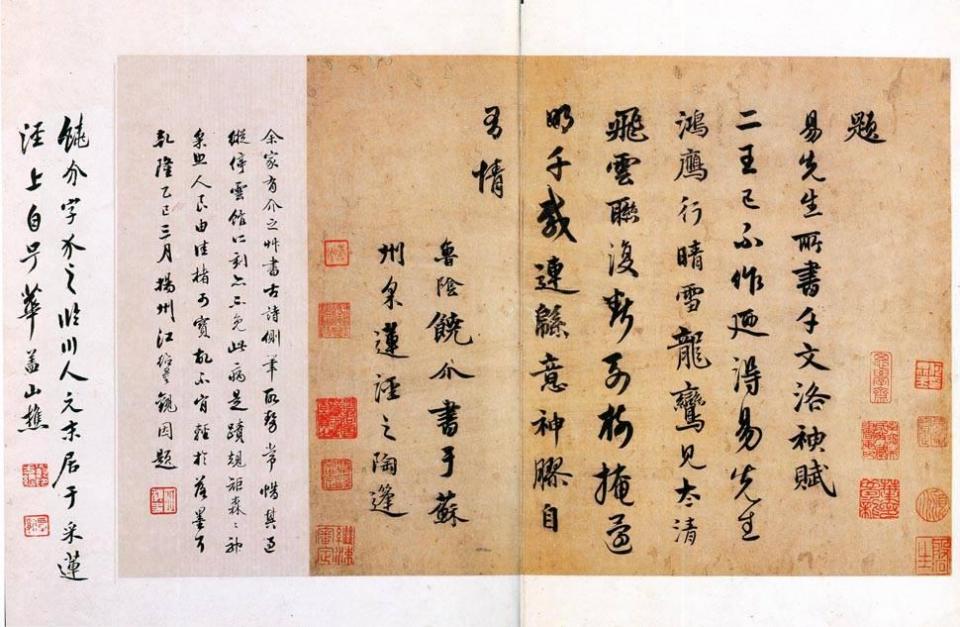 題
易先生所書千文洛神賦
二王已不作廼得易先生
鴻鷹行晴雪龍鸞見太清
飛雲聯復斷 掩還
明千載連緜意神膠自
有情
魯陰饒介書于蘇
州采蓮涇之陶蓬
余家有介之艸書古詩側筆取勢常惜其過
縱停雲館所刻亦不免此病是蹟規矩森〻神
采照人良由佳楮可寶故不肯輕於落墨耳
乾隆乙巳三月揚州江德量觀因題
饒介字介之臨川人元末居于采蓮
涇上自号華蓋山樵